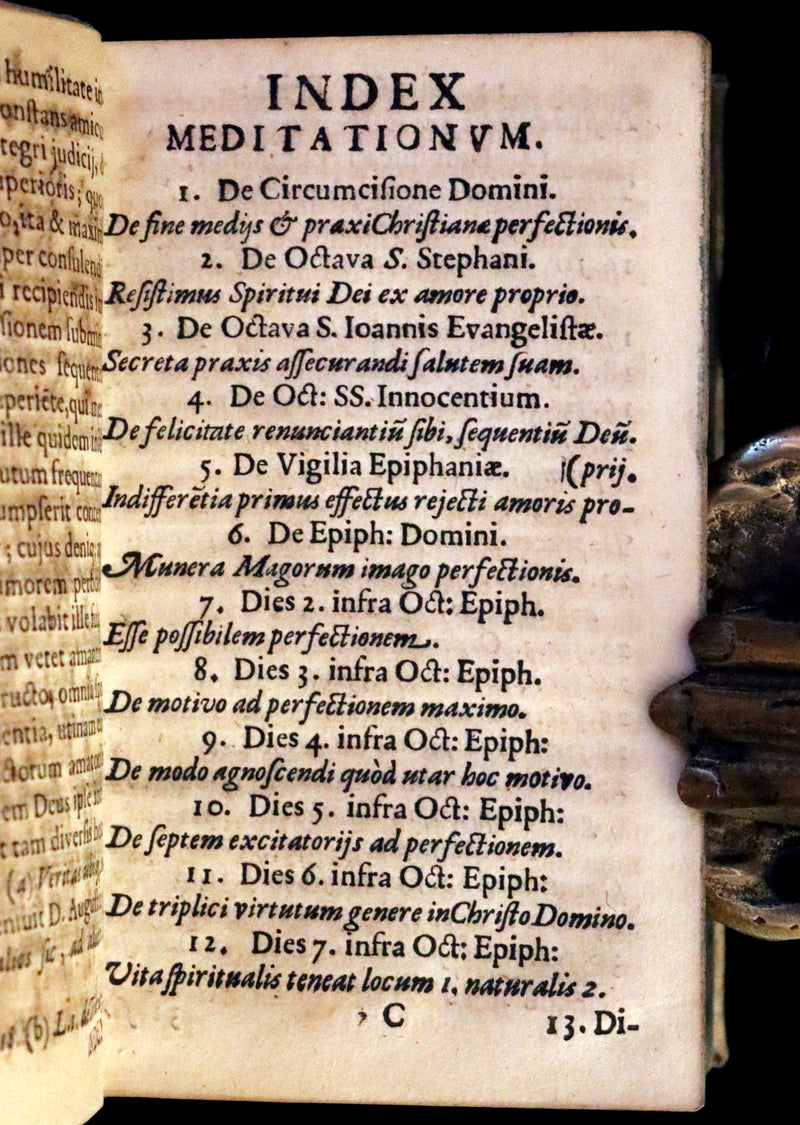 humilitate
judicij,
& maxi
recipiendis
ille quidem
frequen
cujus deniq;
volabit ille
vetet
omni
utinam
Deus ipse
tam diversis
(a) Verit
D. Augu
(b)
INDEX
MEDITATIONVM.
1. De Circumcisione Domini.
De fine medijs & praxi Christianæ perfectionis.
2. De Octava S. Stephani.
Resistimus Spiritui Dei ex amore proprio.
3. De Octava S. Ioannis Evangelistæ.
Secreta praxis assecurandi salutem suam.
4. De Oct: SS. Innocentium.
De felicitate renunciantiũ sibi, sequentiũ Deũ.
5. De Vigilia Epiphaniæ. (prij.
Indifferẽtia primus effectus rejecti amoris pro-
6. De Epiph: Domini.
Munera Magorum imago perfectionis.
7. Dies 2. infra Oct: Epiph.
Esse possibilem perfectionem.
8. Dies 3. infra Oct: Epiph.
De motivo ad perfectionem maximo.
9. Dies 4. infra Oct: Epiph:
De modo agnoscendi quòd utar hoc motivo.
10. Dies 5. infra Oct: Epiph:
De septem excitatorijs ad perfectionem.
11. Dies 6. infra Oct: Epiph:
De triplici virtutum genere in Christo Domino.
12. Dies 7. infra Oct: Epiph:
Vita spiritualis teneat locum 1. naturalis 2.
C 13. Di-